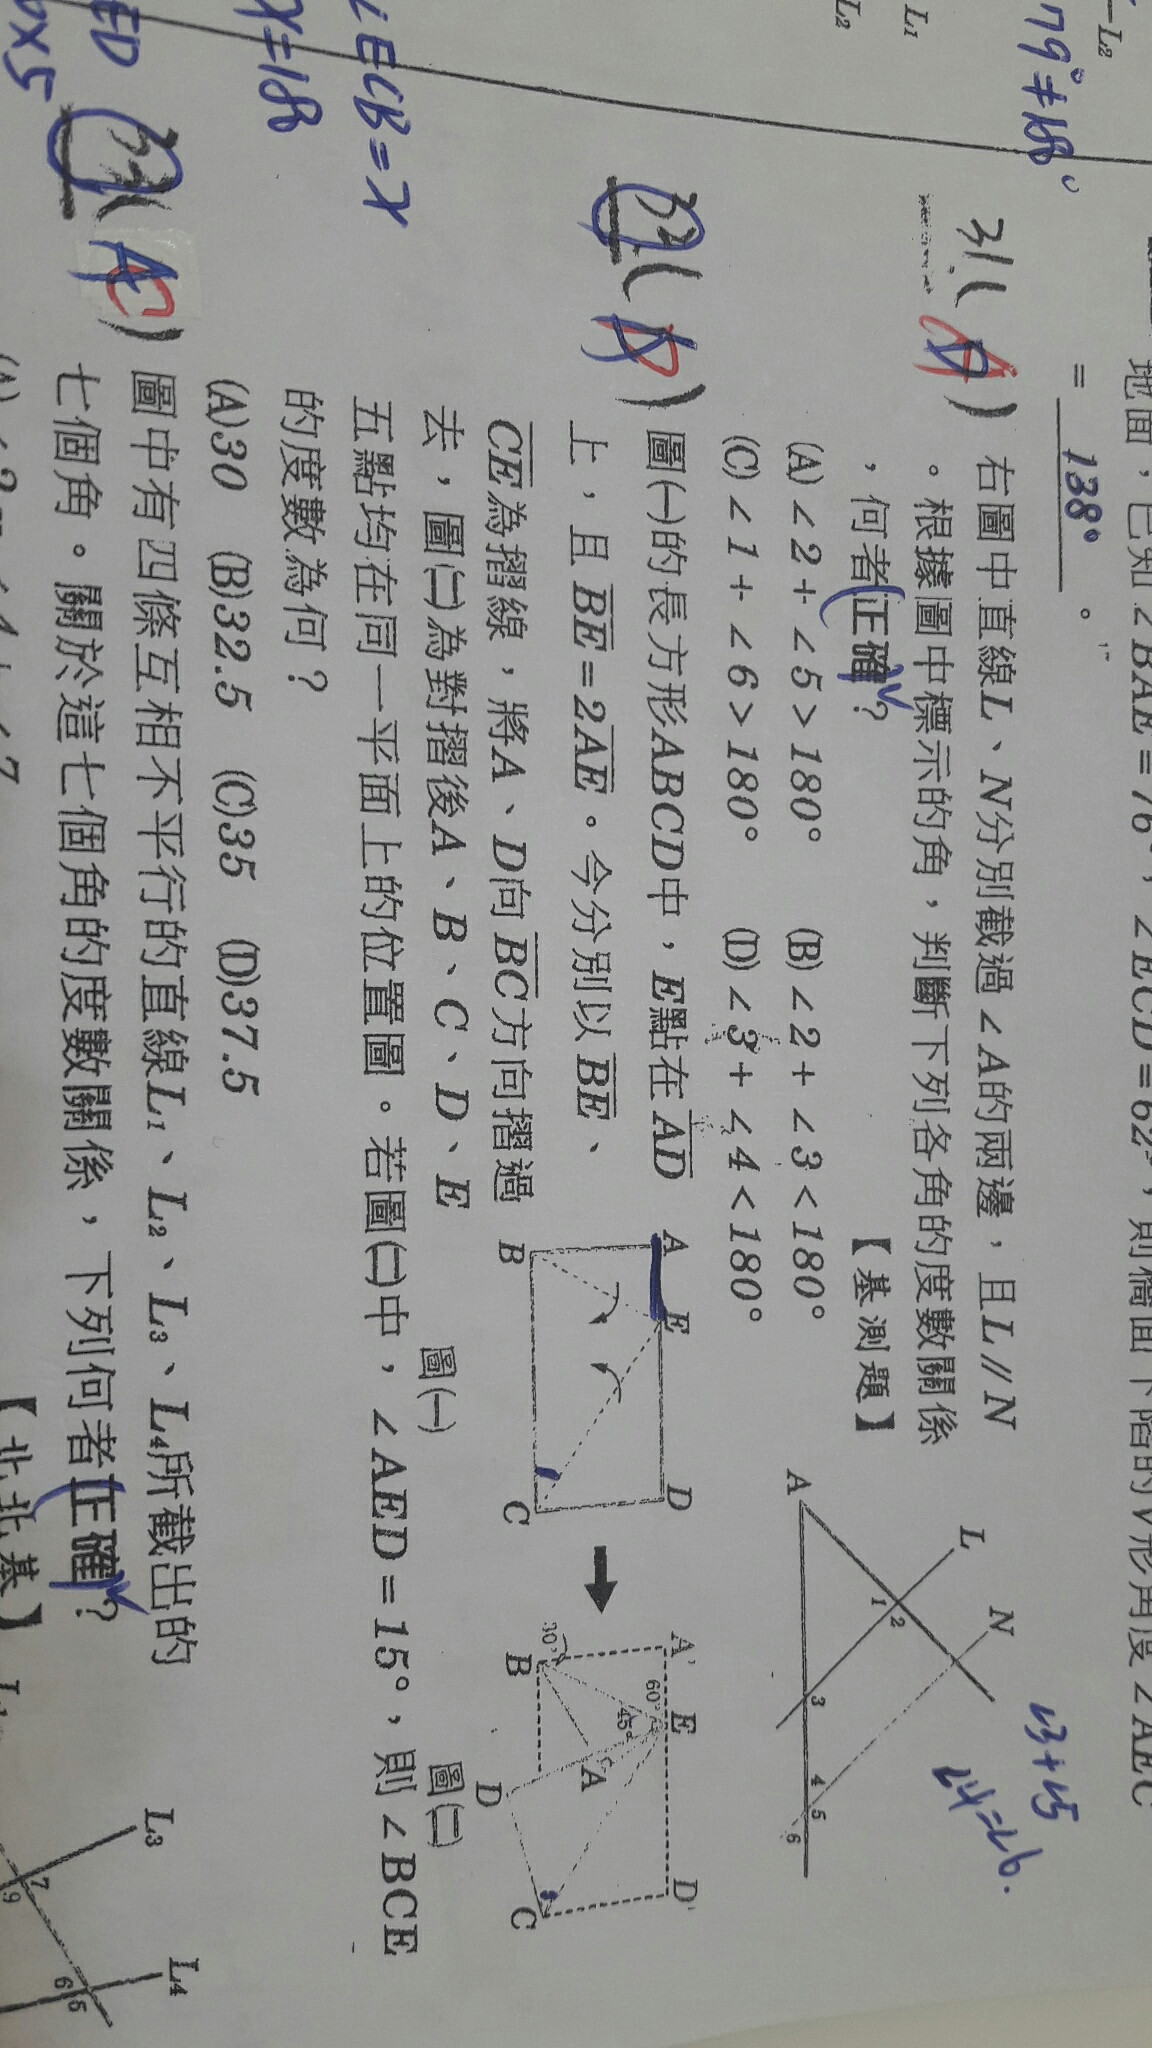 L2
79°≠180°
L1
L2
地面，已知∠BAE=76°，∠ECD=62°，則橋面下陷的V形角度∠AEC
= 138° 。
31( A ) 右圖中直線L、N分別截過∠A的兩邊，且L∥N
。根據圖中標示的角，判斷下列各角的度數關係
，何者正確？ 【基測題】
(A)∠2+∠5>180° (B)∠2+∠3<180°
(C)∠1+∠6>180° (D)∠3+∠4<180°
L N
A 1 2 3 4 5 6
∠3+∠5
∠4=∠6.
32( D ) 圖㈠的長方形ABCD中，E點在AD
上，且BE=2AE。今分別以BE、
CE為摺線，將A、D向BC方向摺過
去，圖㈡為對摺後A、B、C、D、E
五點均在同一平面上的位置圖。若圖㈡中，∠AED=15°，則∠BCE
的度數為何？
(A)30 (B)32.5 (C)35 (D)37.5
A E D
B C
圖㈠
A' E D'
60°
45°
30°
B A D C
圖㈡
∠ECB=x
x=18
33( C ) 圖中有四條互相不平行的直線L1、L2、L3、L4所截出的
七個角。關於這七個角的度數關係，下列何者正確？
【北北基】
L3 L4
7 6 5
ED